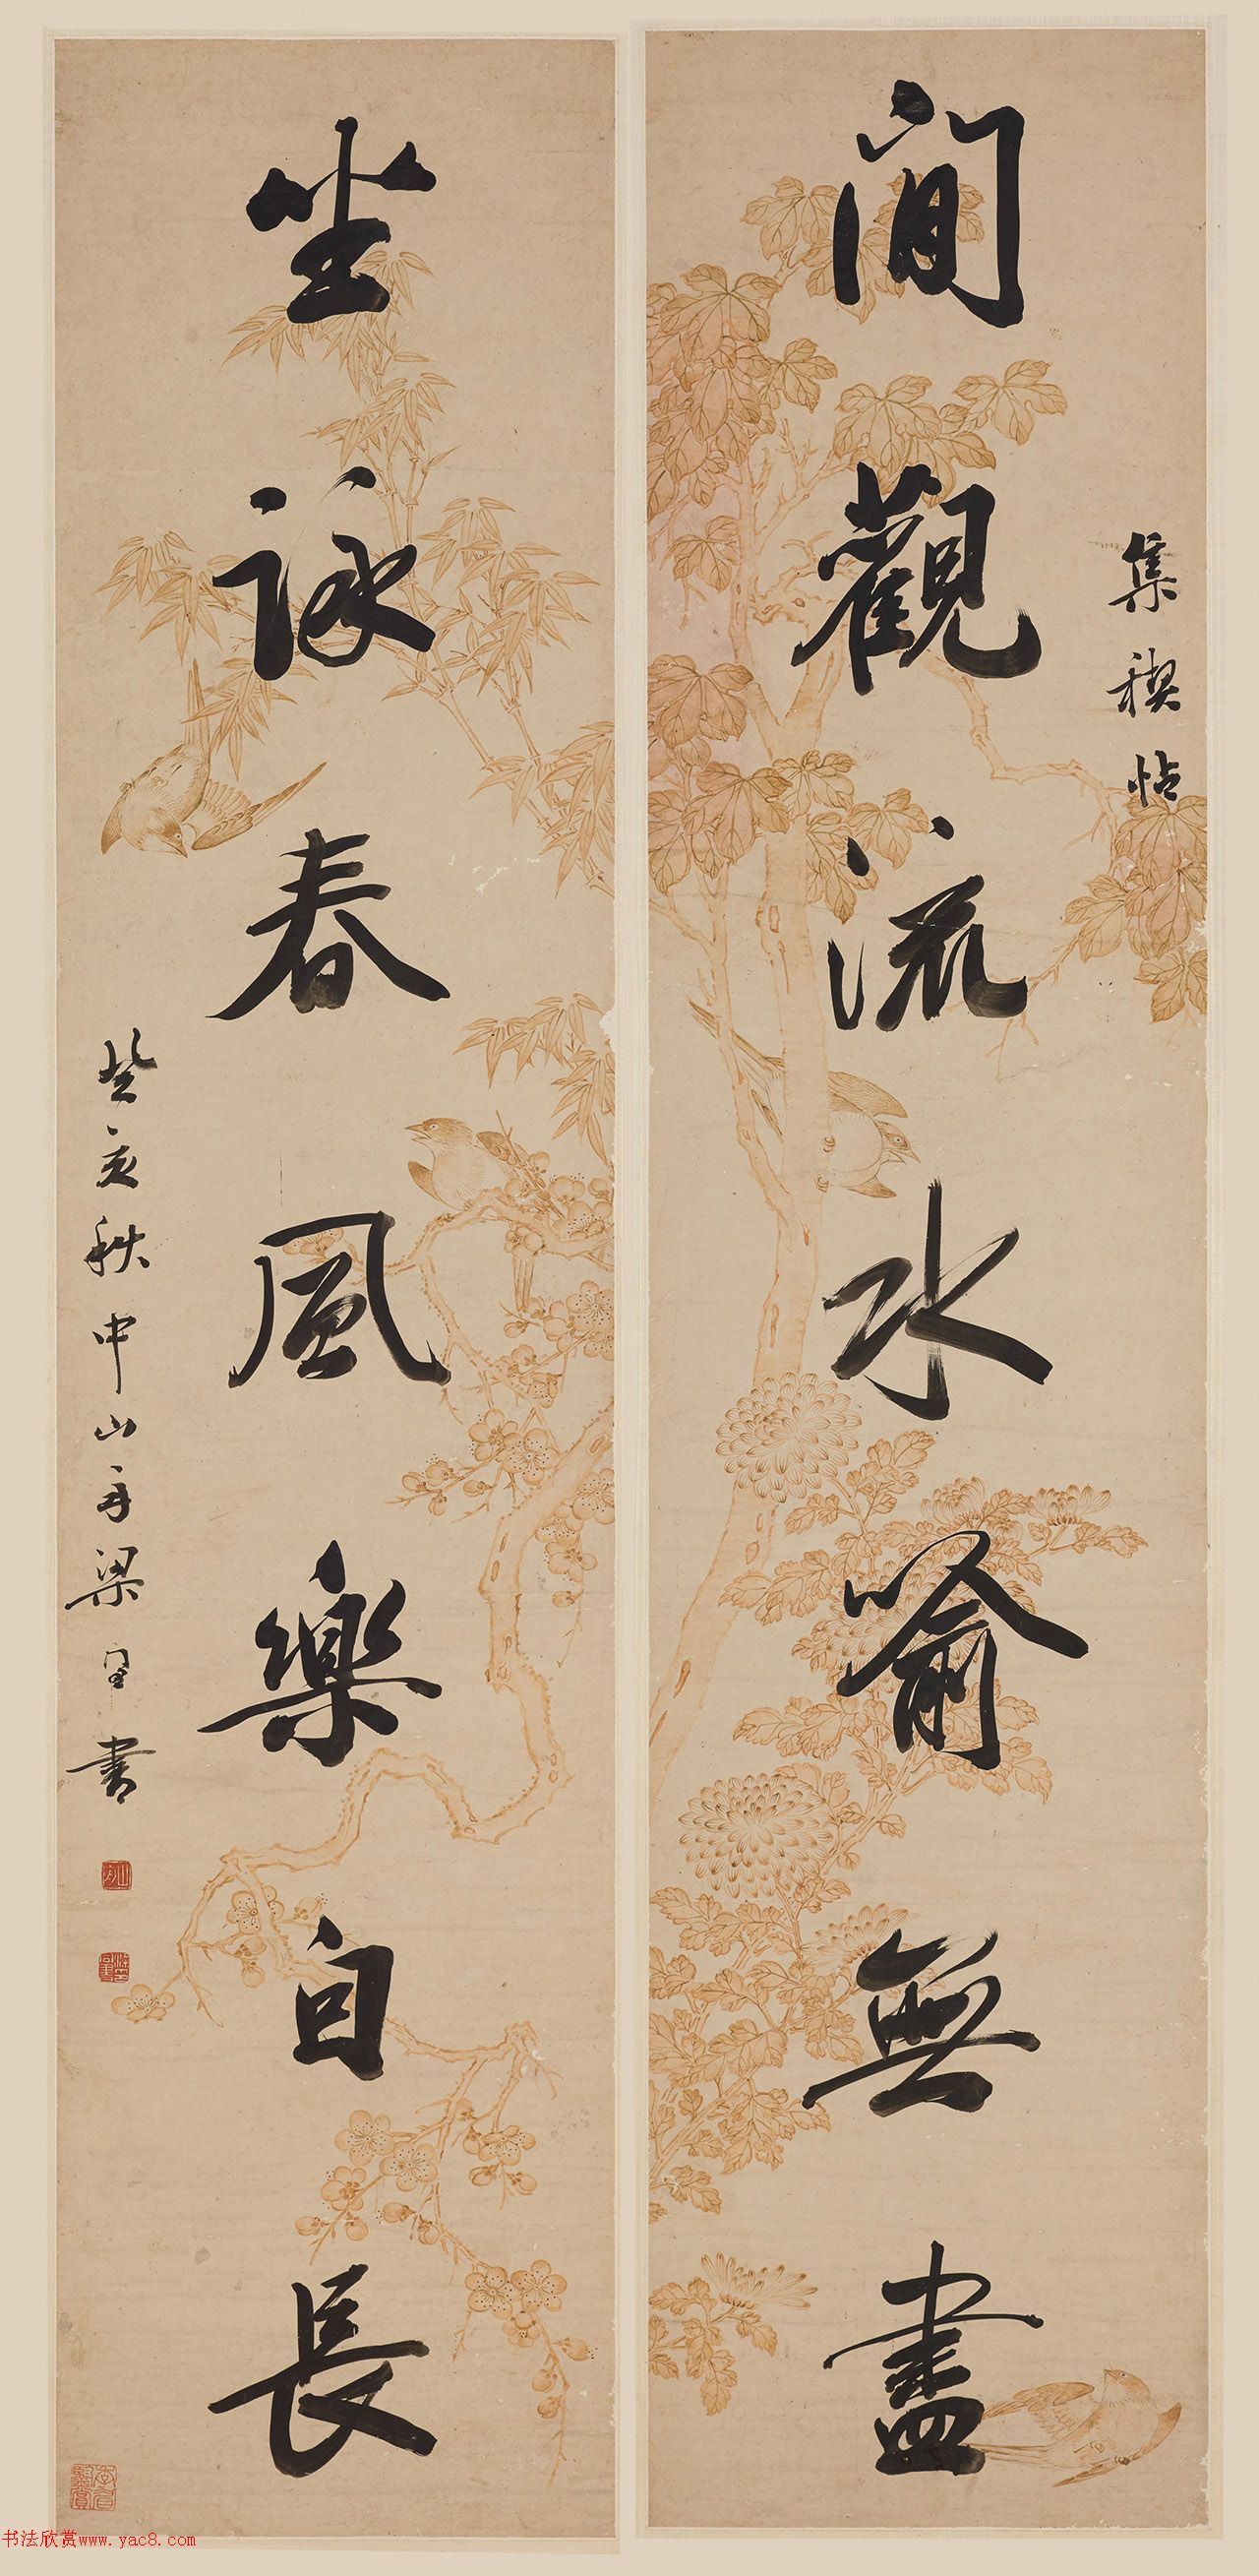 集禊帖
閒觀流水喻無盡
坐詠春風樂自長
癸亥秋中山舟梁同書
书法欣赏www.yac8.com